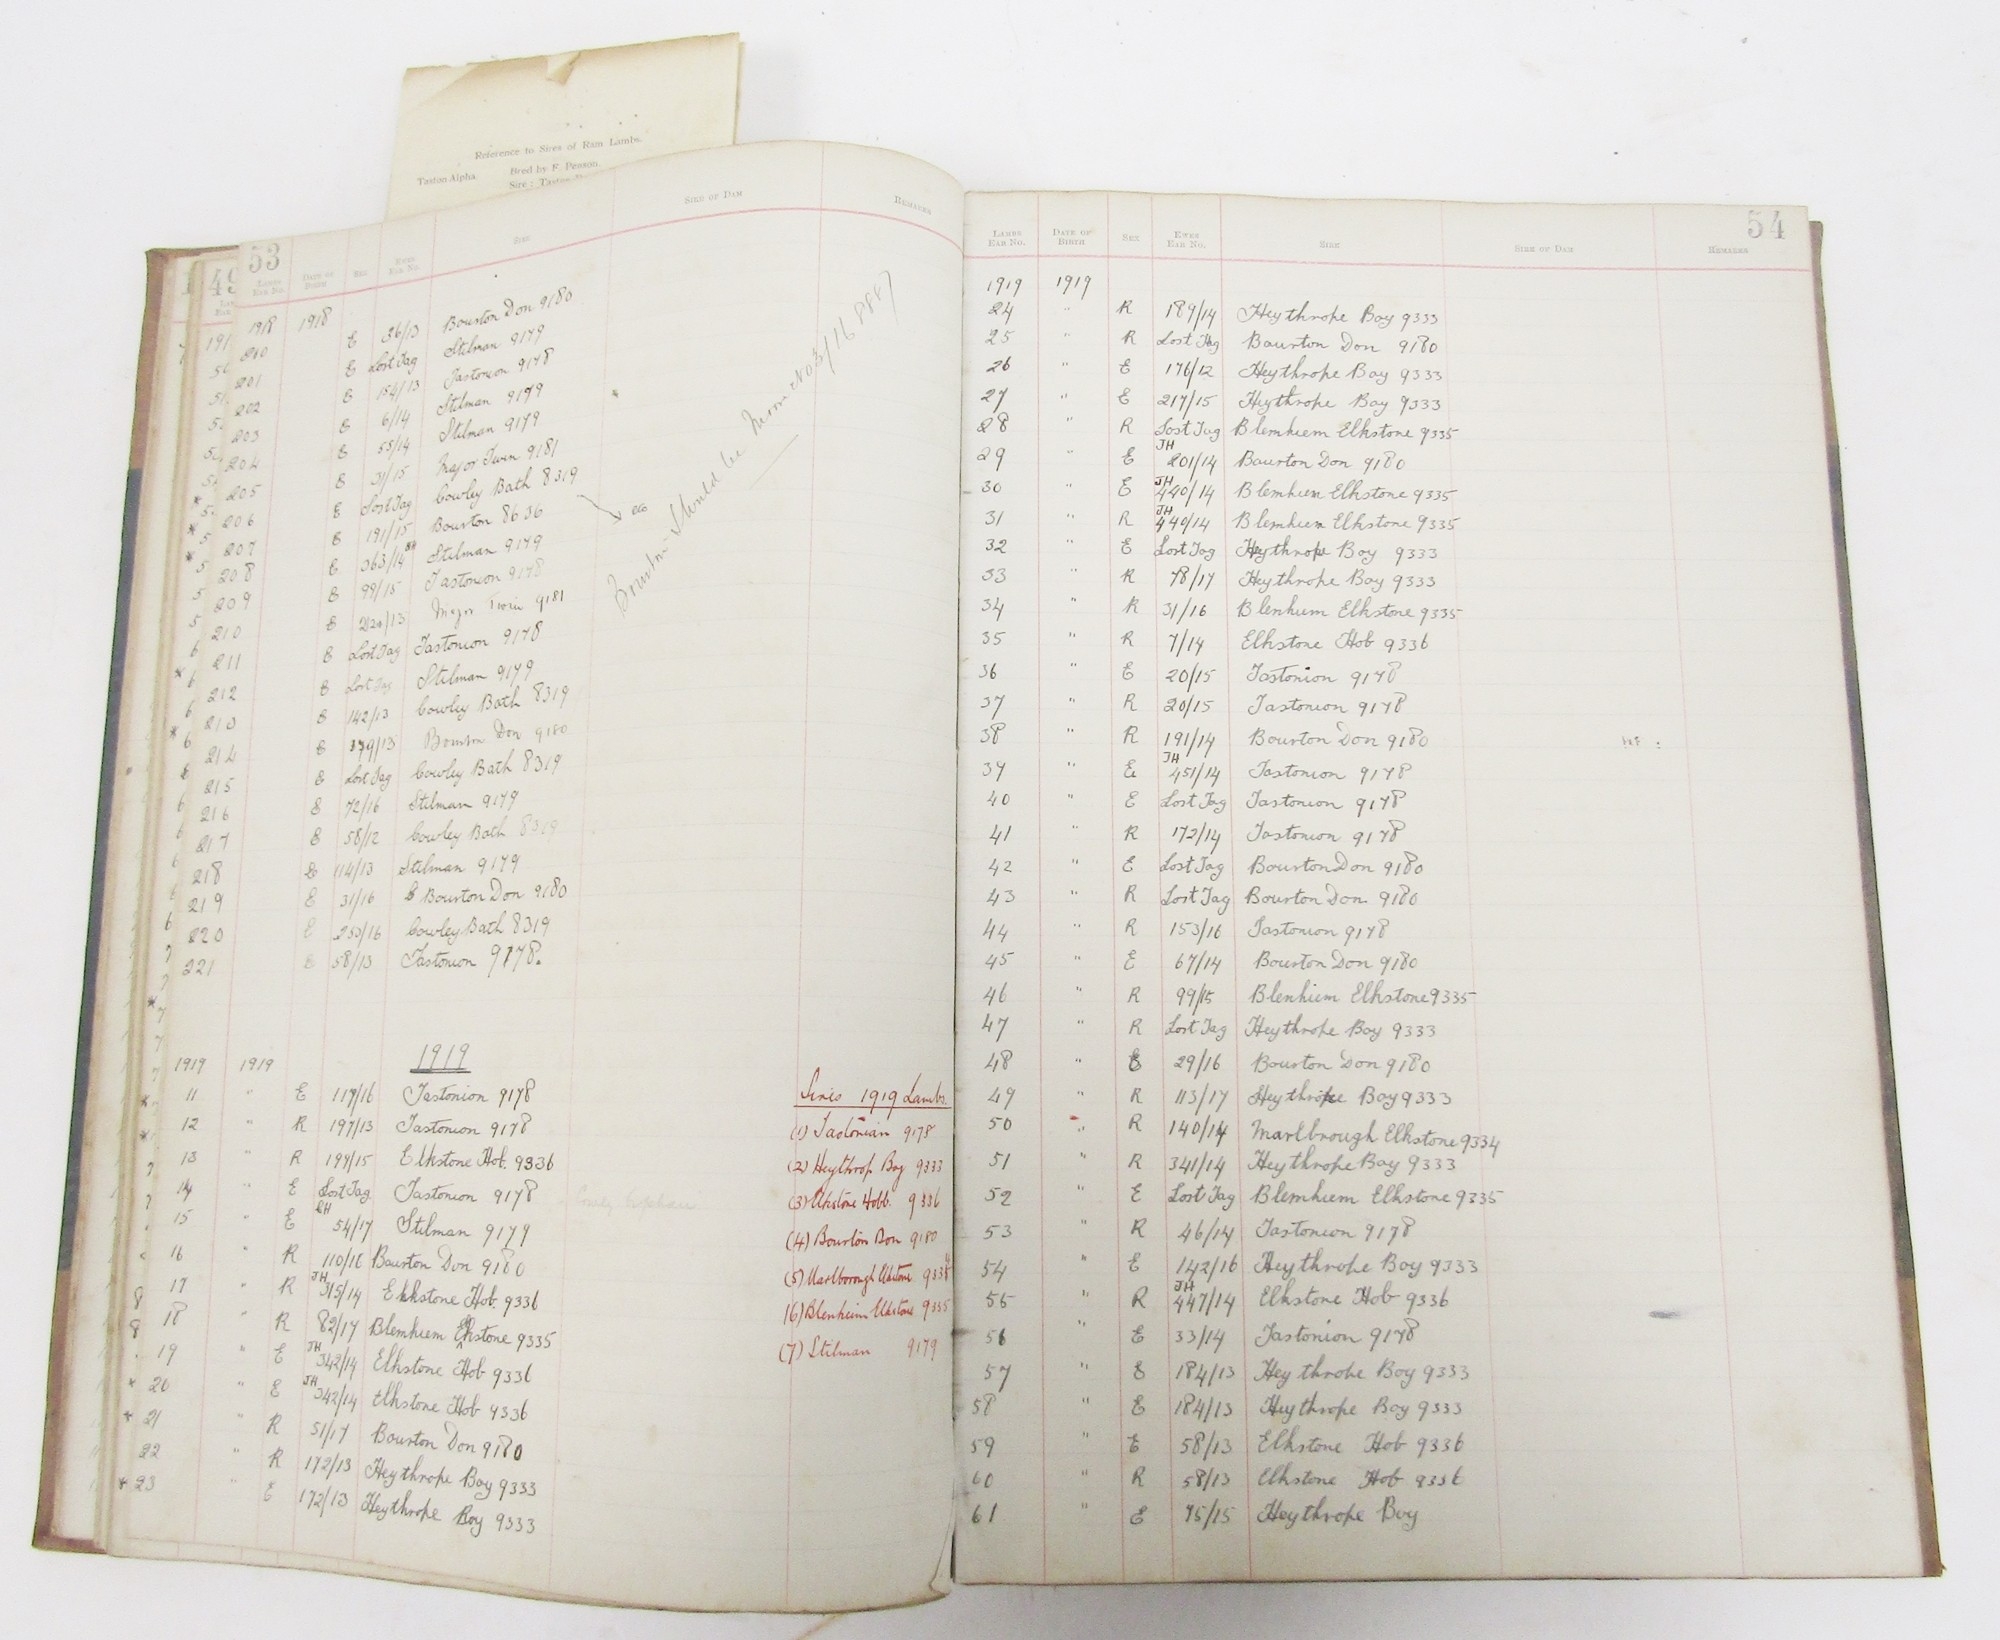 Reference to Sires of Ram Lambs.
Taston Alpha. Bred by F. Penson.
Sire :
53
Lambs Ear No. Date of Birth Sex Ewes Ear No. Sire Sire of Dam Remarks
1918 1918
200 E 36/13 Bourton Don 9180
201 E Lost Tag Stilman 9179
202 E 154/13 Tastonion 9178
203 E 6/14 Stilman 9179
204 E 55/14 Stilman 9179
205 E 31/15 Major Twin 9181
206 E Lost Tag Cowley Bath 8319
207 E 191/15 Bourton 8636
208 E 363/14 Stilman 9179
209 E 99/15 Tastonion 9178
210 E 220/13 Major Twin 9181
211 E Lost Tag Tastonion 9178
212 E Lost Tag Stilman 9179
213 E 142/13 Cowley Bath 8319
214 E 379/13 Bourton Don 9180
215 E Lost Tag Cowley Bath 8319
216 E 72/16 Stilman 9179
217 E 58/12 Cowley Bath 8319
218 E 114/13 Stilman 9179
219 E 31/16 Bourton Don 9180
220 E 250/16 Cowley Bath 8319
221 E 58/13 Tastonion 9178.
Bourton should be
1919
1919 1919
11 " E 119/16 Tastonion 9178
12 " R 197/13 Tastonion 9178
13 " R 199/15 Elkstone Hob. 9336
14 " E Lost Tag Tastonion 9178
15 " E 54/17 Stilman 9179
16 " R 110/16 Bourton Don 9180
17 " R JH 315/14 Elkstone Hob. 9336
18 " R 82/17 Blemhiem Elkstone 9335
19 " E JH 342/14 Elkstone Hob 9336
* 20 " E JH 342/14 Elkstone Hob 9336
* 21 " R 51/17 Bourton Don 9180
22 " R 172/13 Heythrope Boy 9333
* 23 " E 172/13 Heythrope Boy 9333
Sires 1919 Lambs.
(1) Tastonian 9178
(2) Heythrop Boy 9333
(3) Elkstone Hobb. 9336
(4) Bourton Don 9180
(5) Marlborough Elkstone 9334
(6) Blenheim Elkstone 9335
(7) Stilman 9179
54
Lambs Ear No. Date of Birth Sex Ewes Ear No. Sire Sire of Dam Remarks
1919 1919
24 " R 189/14 Heythrope Boy 9333
25 " R Lost Tag Bourton Don 9180
26 " E 176/12 Heythrope Boy 9333
27 " E 217/15 Heythrope Boy 9333
28 " R Lost Tag Blemhiem Elkstone 9335
29 " E JH 201/14 Bourton Don 9180
30 " E JH 440/14 Blemhiem Elkstone 9335
31 " R JH 440/14 Blemhiem Elkstone 9335
32 " E Lost Tag Heythrope Boy 9333
33 " R 78/17 Heythrope Boy 9333
34 " R 31/16 Blenhiem Elkstone 9335
35 " R 7/14 Elkstone Hob 9336
36 " E 20/15 Tastonion 9178
37 " R 20/15 Tastonion 9178
38 " R 191/14 Bourton Don 9180
39 " E JH 451/14 Tastonion 9178
40 " E Lost Tag Tastonion 9178
41 " R 172/14 Tastonion 9178
42 " E Lost Tag Bourton Don 9180
43 " R Lost Tag Bourton Don 9180
44 " R 153/16 Tastonion 9178
45 " E 67/14 Bourton Don 9180
46 " R 99/15 Blenhiem Elkstone 9335
47 " R Lost Tag Heythrope Boy 9333
48 " E 29/16 Bourton Don 9180
49 " R 113/17 Heythrope Boy 9333
50 " R 140/14 Marlbrough Elkstone 9334
51 " R 341/14 Heythrope Boy 9333
52 " E Lost Tag Blemhiem Elkstone 9335
53 " R 46/14 Tastonion 9178
54 " E 142/16 Heythrope Boy 9333
55 " R JH 447/14 Elkstone Hob 9336
56 " E 33/14 Tastonion 9178
57 " E 184/13 Heythrope Boy 9333
58 " E 184/13 Heythrope Boy 9333
59 " E 58/13 Elkstone Hob 9336
60 " R 58/13 Elkstone Hob 9336
61 " E 75/15 Heythrope Boy